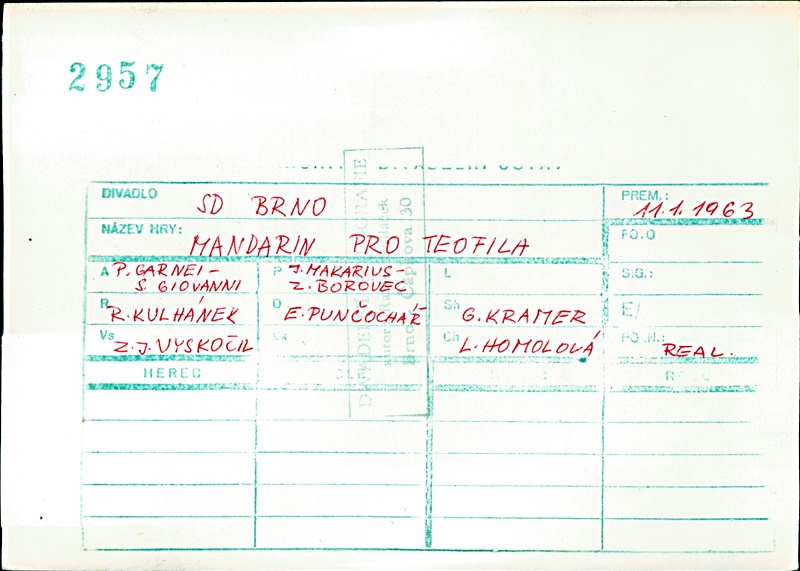 2957
DIVADELNÍ ÚSTAV
DIVADLO SD BRNO
PREM.: 11.1.1963
NÁZEV HRY: MANDARIN PRO TEOFILA
FO.O
A P. GARNEI -
S. GIOVANNI
P J. MAKARIUS -
Z. BOROVEC
L
SIG.:
R R. KULHÁNEK
D E. PUNČOCHAŘ
Sh G. KRAMER
E/
Vs Z. J. VYSKOČIL
Ch L. HOMOLOVÁ
PO.N.: REAL.
HEREC
Brno Čapkova 30